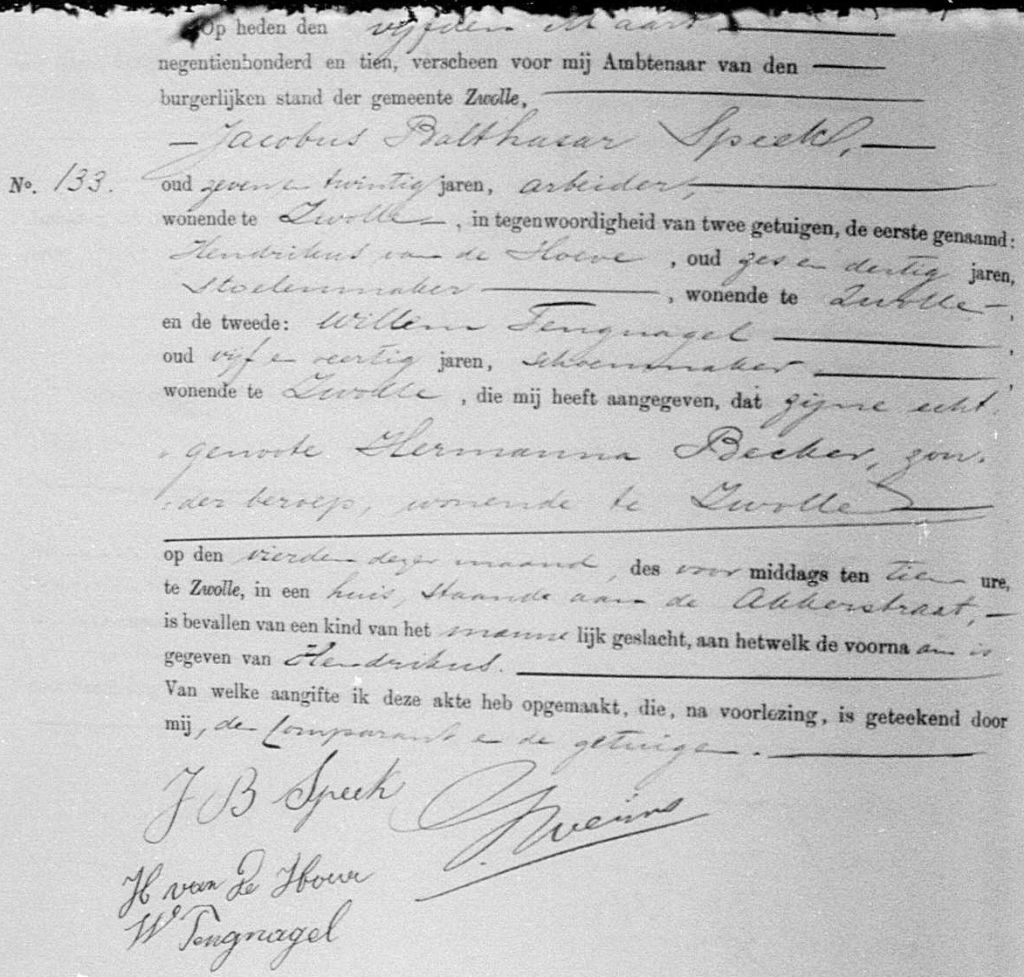 Op heden den vijfden Maart
negentienhonderd en tien, verscheen voor mij Ambtenaar van den
burgerlijken stand der gemeente Zwolle,
Jacobus Balthasar Speek,
No. 133.
oud zeven en twintig jaren, arbeider,
wonende te Zwolle, in tegenwoordigheid van twee getuigen, de eerste genaamd:
Hendrikus van de Hoeve, oud zes en dertig jaren,
stoelenmaker, wonende te Zwolle,
en de tweede: Willem Tengnagel,
oud vijf en veertig jaren, schoenmaker,
wonende te Zwolle, die mij heeft aangegeven, dat zijne echt-
genoote Hermanna Becker, zon-
der beroep, wonende te Zwolle
op den vierden dezer maand, des voor middags ten tien ure,
te Zwolle, in een huis, staande aan de Akkerstraat,
is bevallen van een kind van het manne lijk geslacht, aan hetwelk de voorna am is
gegeven van Hendrikus.
Van welke aangifte ik deze akte heb opgemaakt, die, na voorlezing, is geteekend door
mij, den Comparant en de getuigen.
J B Speek
H van de Hoeve
W Tengnagel